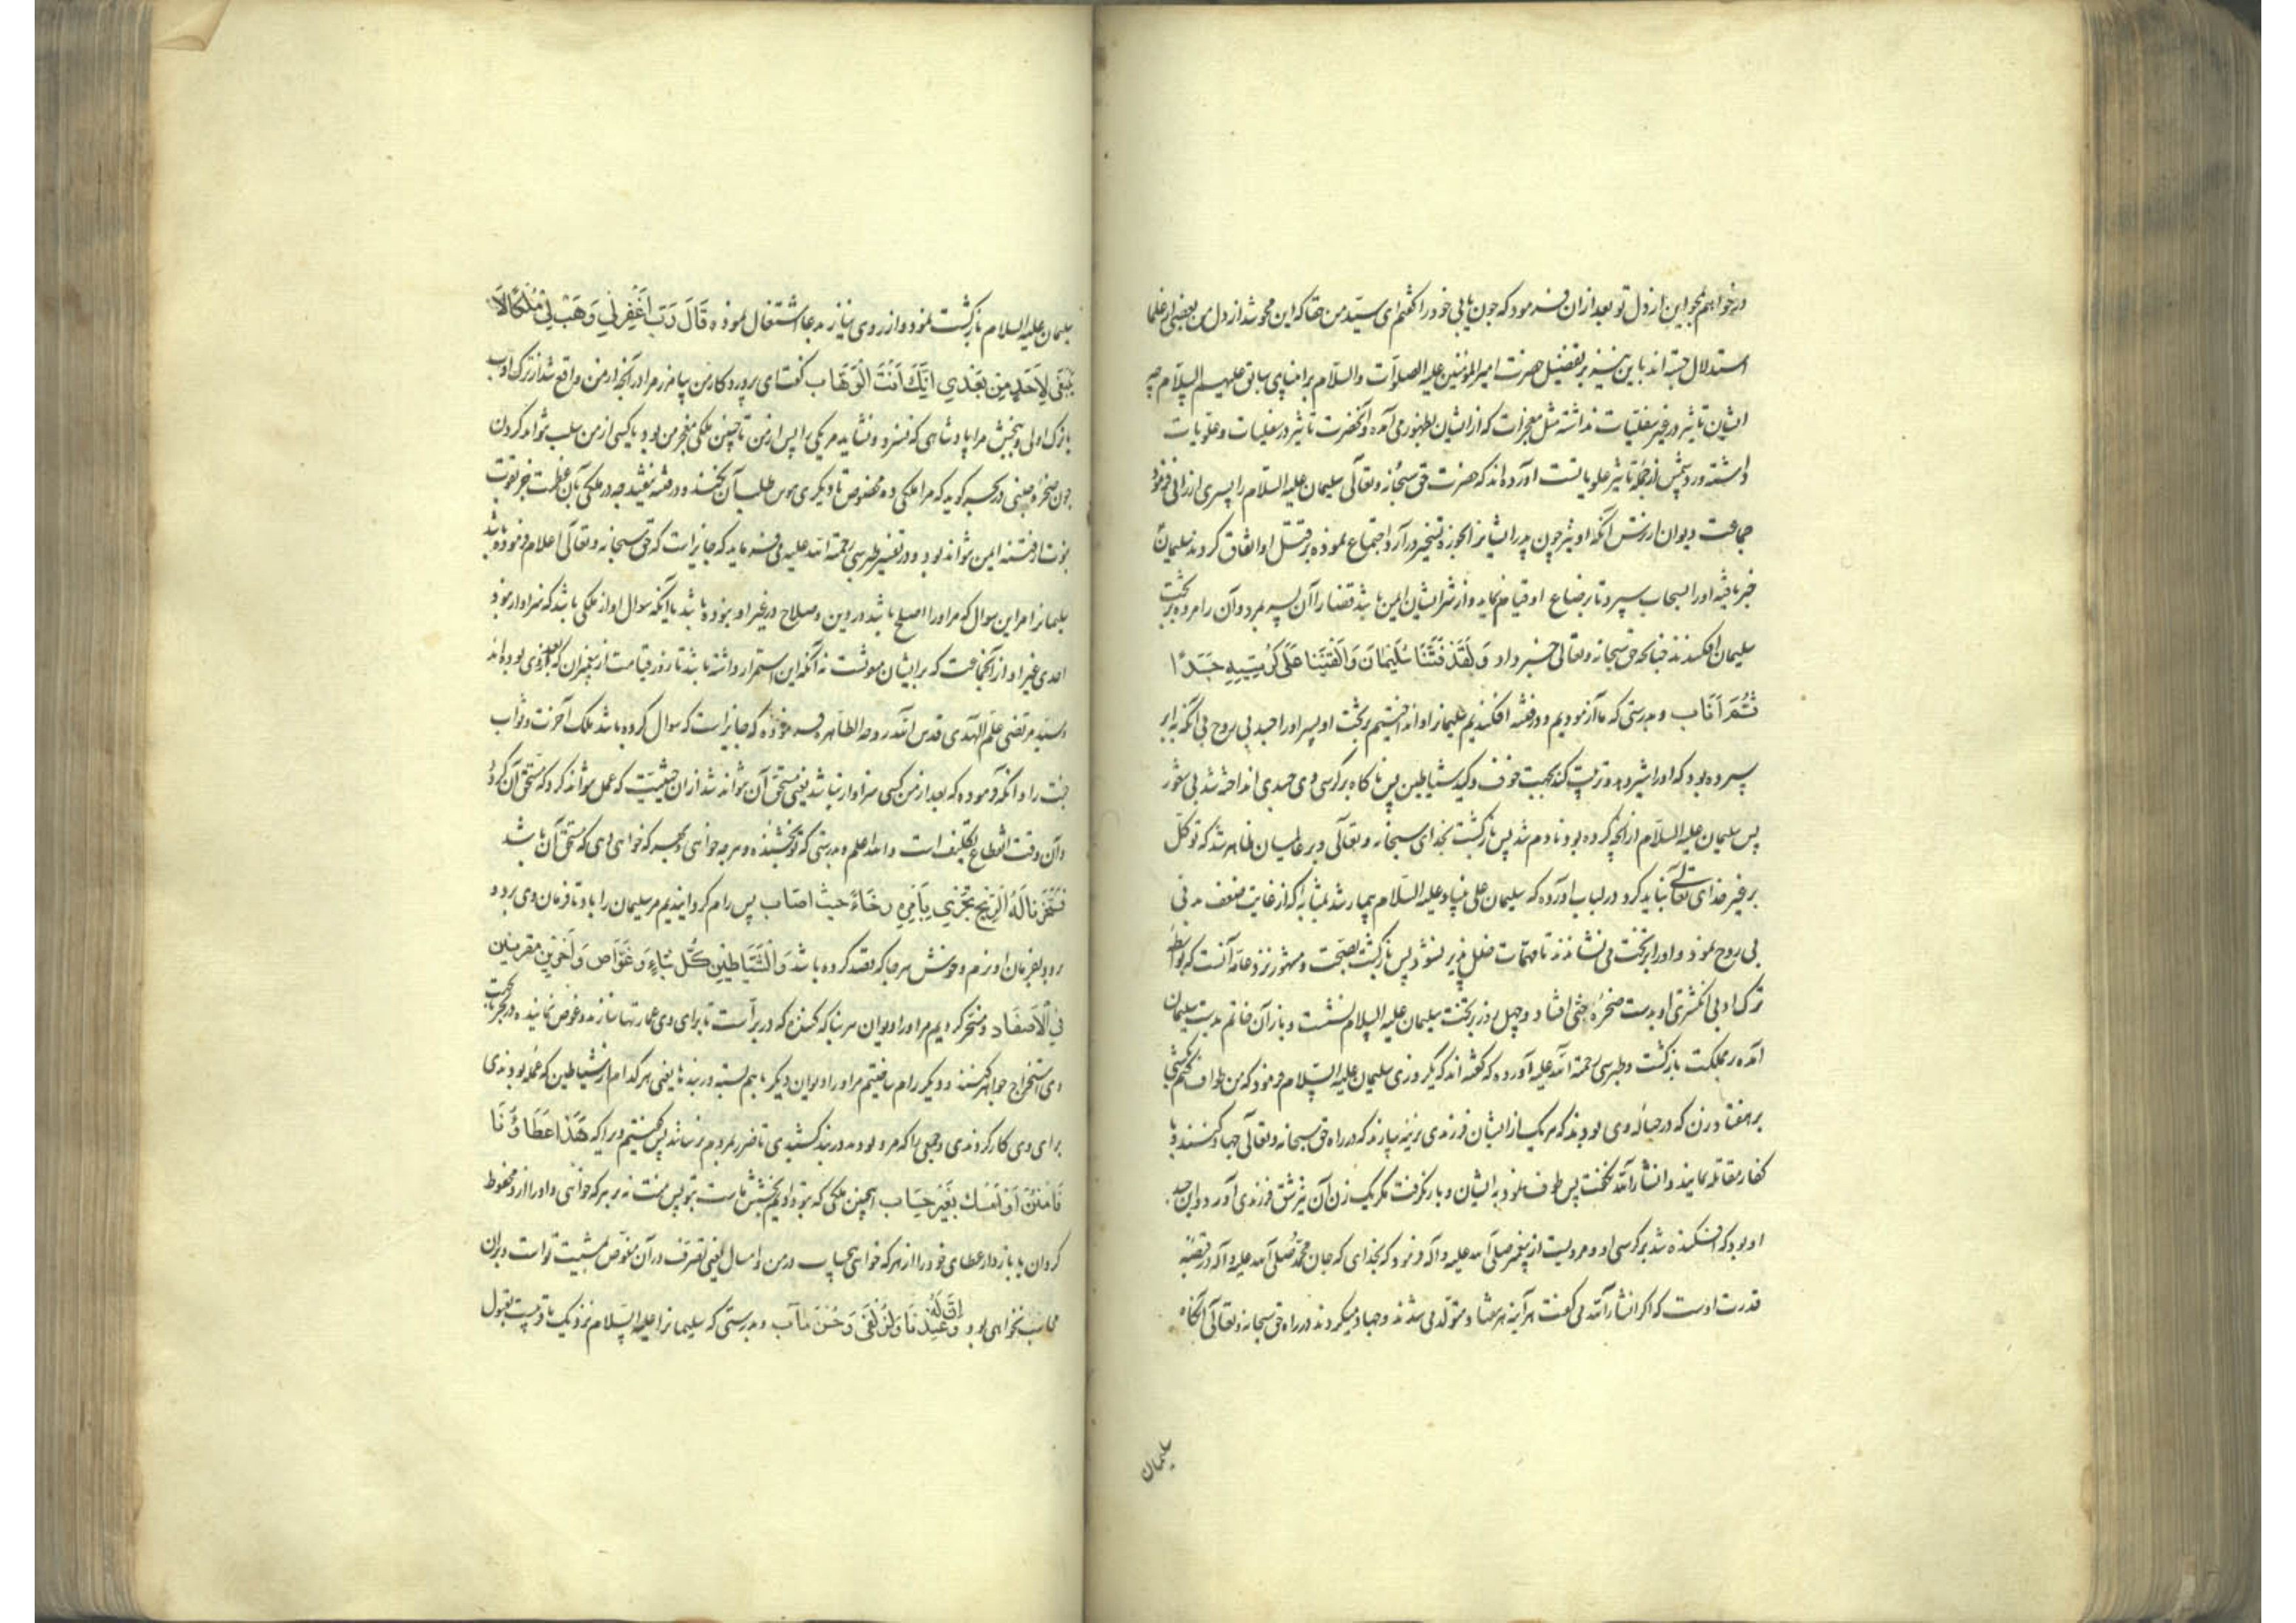 درخواهم محو این از دل تو بعد از ان فرمود که چون یابی خود را گفتم ای سید من حقا که این محو شد از دل من بعضی از علما
استدلال جسته اند باین نیز بر تفضیل حضرت امیر المؤمنین علیه الصلوات والسلام بر انبیای سابق علیهم السلام چه
ایشان تاثیر در غیر سفلیات نداشته مثل معجزات که از ایشان بظهور می آمده و آنحضرت تاثیر در سفلیات و علویات
داشته و رد شمس از جمله تاثیر علویاتست آورده اند که حضرت حق سبحانه وتعالی سلیمان علیه السلام را پسری ارزانی فرمود
جماعت دیوان از ترس آنکه او نیز چون پدر ایشانرا بحوزه تسخیر درآرد اجتماع نموده بر قتل او اتفاق کردند سلیمان
خبر یافته او را بسحاب سپرد تا برضاع او قیام نماید و از شر ایشان ایمن باشد قضا را آن پسر بمرد و آن را مرده بر تخت
سلیمان افکندند چنانچه حق سبحانه وتعالی خبر داد وَلَقَدْ فَتَنَّا سُلَيْمَانَ وَاَلْقَيْنَا عَلَى كُرْسِيِّهِ جَسَدًا
ثُمَّ اَنَاب و بدرستی که ما آزمودیم و در فتنه افکندیم سلیمانرا و انداختیم بر تخت او پسر او را جسد بی روح بی آنکه به ابر
سپرده بود که او را شیر دهد و تربیت کند بجهت خوف و کید شیاطین پس ناگاه بر کرسی وی جسدی انداخته شد بی شعور
پس سلیمان علیه السلام از آنچه کرده بود نادم شد پس بازگشت بخدای سبحانه وتعالی و بر عالمیان ظاهر شد که توکل
بر غیر خدای تعالی نباید کرد در لباب آورده که سلیمان علی نبینا وعلیه السلام بیمار شد بمثابه که از غایت ضعف بدنی
بی روح نمود و او را بر تخت می نشاندند تا مهمات خلل پذیر نشود پس بازگشت بصحت و مشهور نزد عامه آنست که بواسطه
ترک ادبی انگشتری او بدست صخره جنی افتاد و چهل روز بر تخت سلیمان علیه السلام نشست و باز آن خاتم بدست سلیمان
آمده بر مملکت بازگشت و طبرسی رحمة الله علیه آورده که گفته اند که یکروزی سلیمان علیه السلام فرمود که من طواف کنم امشبی
بر هفتاد زن که در حباله وی بودند که هر یک از ایشان فرزندی نرینه بیارند که در راه حق سبحانه وتعالی جهاد کنند و با
کفار مقاتله نمایند و انشاء الله نگفت پس طوف نمود به ایشان و بار نگرفت مگر یک زن آن نیز شق فرزندی آورد و این جسد
او بود که افکنده شد بر کرسی او و مرویست از پیغمبر صلی الله علیه وآله فرمود که بخدای که جان محمد صلی الله علیه وآله در قبضه
قدرت اوست که اگر انشاء الله می گفت هر آینه هر هفتاد متولد می شدند و جهاد میکردند در راه حق سبحانه وتعالی آنگاه
سلیمان
سلیمان علیه السلام بازگشت نمود و از روی نیاز بدعا اشتغال نموده قَالَ رَبِّ اغْفِرْلِي وَهَبْ لِي مُلْكًا لَا
يَنْبَغِي لِاَحَدٍ مِنْ بَعْدِي اِنَّكَ اَنْتَ الْوَهَّاب گفت ای پروردگار من بیامرز مرا در آنچه از من واقع شد از ترک ادب
یا ترک اولی و ببخش مرا پادشاهی که نسزد و نشاید مر یکی را پس از من تا چنین ملکی معجز من بود یا کسی از من سلب نتواند کردن
چون صخره جنی که گوید که مرا ملکی ده مخصوص تا دیگری هوس طلب آن نکند و در فتنه نیفتد چه در ملکی بآن عظمت جز بقوت
نبوت از فتنه ایمن نتواند بود و در تفسیر طبرسی رحمة الله علیه می فرماید که جایز است که حق سبحانه وتعالی اعلام فرموده باشد
سلیمانرا مر این سوال که مر او را اصلح باشد در دین و صلاح در غیر او نبوده باشد یا آنکه سوال او از ملکی باشد که سزاوار نبود
احدی غیر او از آنجماعت که بر ایشان مبعوثست نه آنکه این استمرار داشته باشد تا روز قیامت از پیغمبران که بعد از وی بوده اند
وسید مرتضی علم الهدی قدس الله روحه الطاهره فرموده که جایز است که سوال کرده باشد ملک آخرت و ثواب
جنت را و آنکه فرموده که بعد از من کسی سزاوار نباشد یعنی مستحق آن نتواند شد از آن حیثیت که عمل نتواند کرد که مستحق آن گردد
و آن وقت انقطاع تکلیف است والله اعلم و بدرستی که تو بخشنده و هر چه خواهی و بهر که خواهی دهی که مستحق آن باشد
فَسَخَّرْنَا لَهُ الرِّيحَ تَجْرِي بِاَمْرِهِ رُخَاءً حَيْثُ اَصَاب پس رام گردانیدیم مر سلیمان را باد تا فرمان وی برود
رود بفرمان او نرم و خوش هر جا که قصد کرده باشد وَالشَّيَاطِينَ كُلَّ بَنَّاءٍ وَغَوَّاص وَآخَرِينَ مُقَرَّنِينَ
فِي الْاَصْفَاد و مسخر کردیم مر او را دیوان هر بنا که کننده که در بر است تا برای وی عمارتها سازند و غوص نماینده در بحر تا بجهت
وی استخراج جواهر کنند و دیگر رام ساختیم مر او را دیوان دیگر باهم بسته در بندها یعنی هر کدام از شیاطین که عمله بودندی
برای وی کار کردندی و جمعی را که مرد بودند در بند کشیدی تا ضرر بمردم نرسانند پس گفتیم ویرا که هَذَا عَطَاؤُنَا
فَامْنُنْ اَوْ اَمْسِكْ بِغَيْرِ حِسَاب اینچنین ملکی که بتو دادیم بخشش ماست بتو پس منت نه بر هر که خواهی و او را از او محظوظ
گردان یا باز دار عطای خود را از هر که خواهی بیحساب در من و امساک یعنی تصرف در آن مفوض بمشیت تو است و بران
محاسب نخواهی بود وَاِنَّ لَهُ عِنْدَنَا لَزُلْفَى وَحُسْنَ مَآب و بدرستی که سلیمانرا علیه السلام نزد یک ما قربیست بقبول